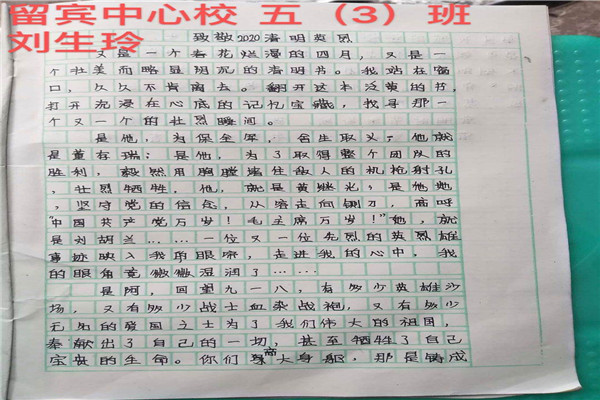 留宾中心校 五（3）班
刘生玲
致敬2020清明英烈
又是一个春花烂漫的四月，又是一
个壮美而略显阴沉的清明节。我站在窗
口，久久不肯离去。翻开这本泛黄的书，
打开沉浸在心底的记忆宝藏，找寻那一
个又一个的壮烈瞬间。
是他，为保全军，舍生取义，他就
是董存瑞；是他，为了取得整个团队的
胜利，毅然用胸膛堵住敌人的机枪射孔
，壮烈牺牲，他，就是黄继光；是她
，坚守党的信念，从容走向铡刀，高呼
“中国共产党万岁！毛主席万岁！”她，就
是刘胡兰……一位又一位先烈的英烈雄
事迹映入我的眼帘，走进我的心中，我
的眼角竟微微湿润了……
是阿，回望九一八，有多少英雄沙
场，又有多少战士血染战袍，又有多少
无名的爱国之士为了我们伟大的祖国，
奉献出了自己的一切，甚至牺牲了自己
宝贵的生命。你们高大身躯，那是铸成